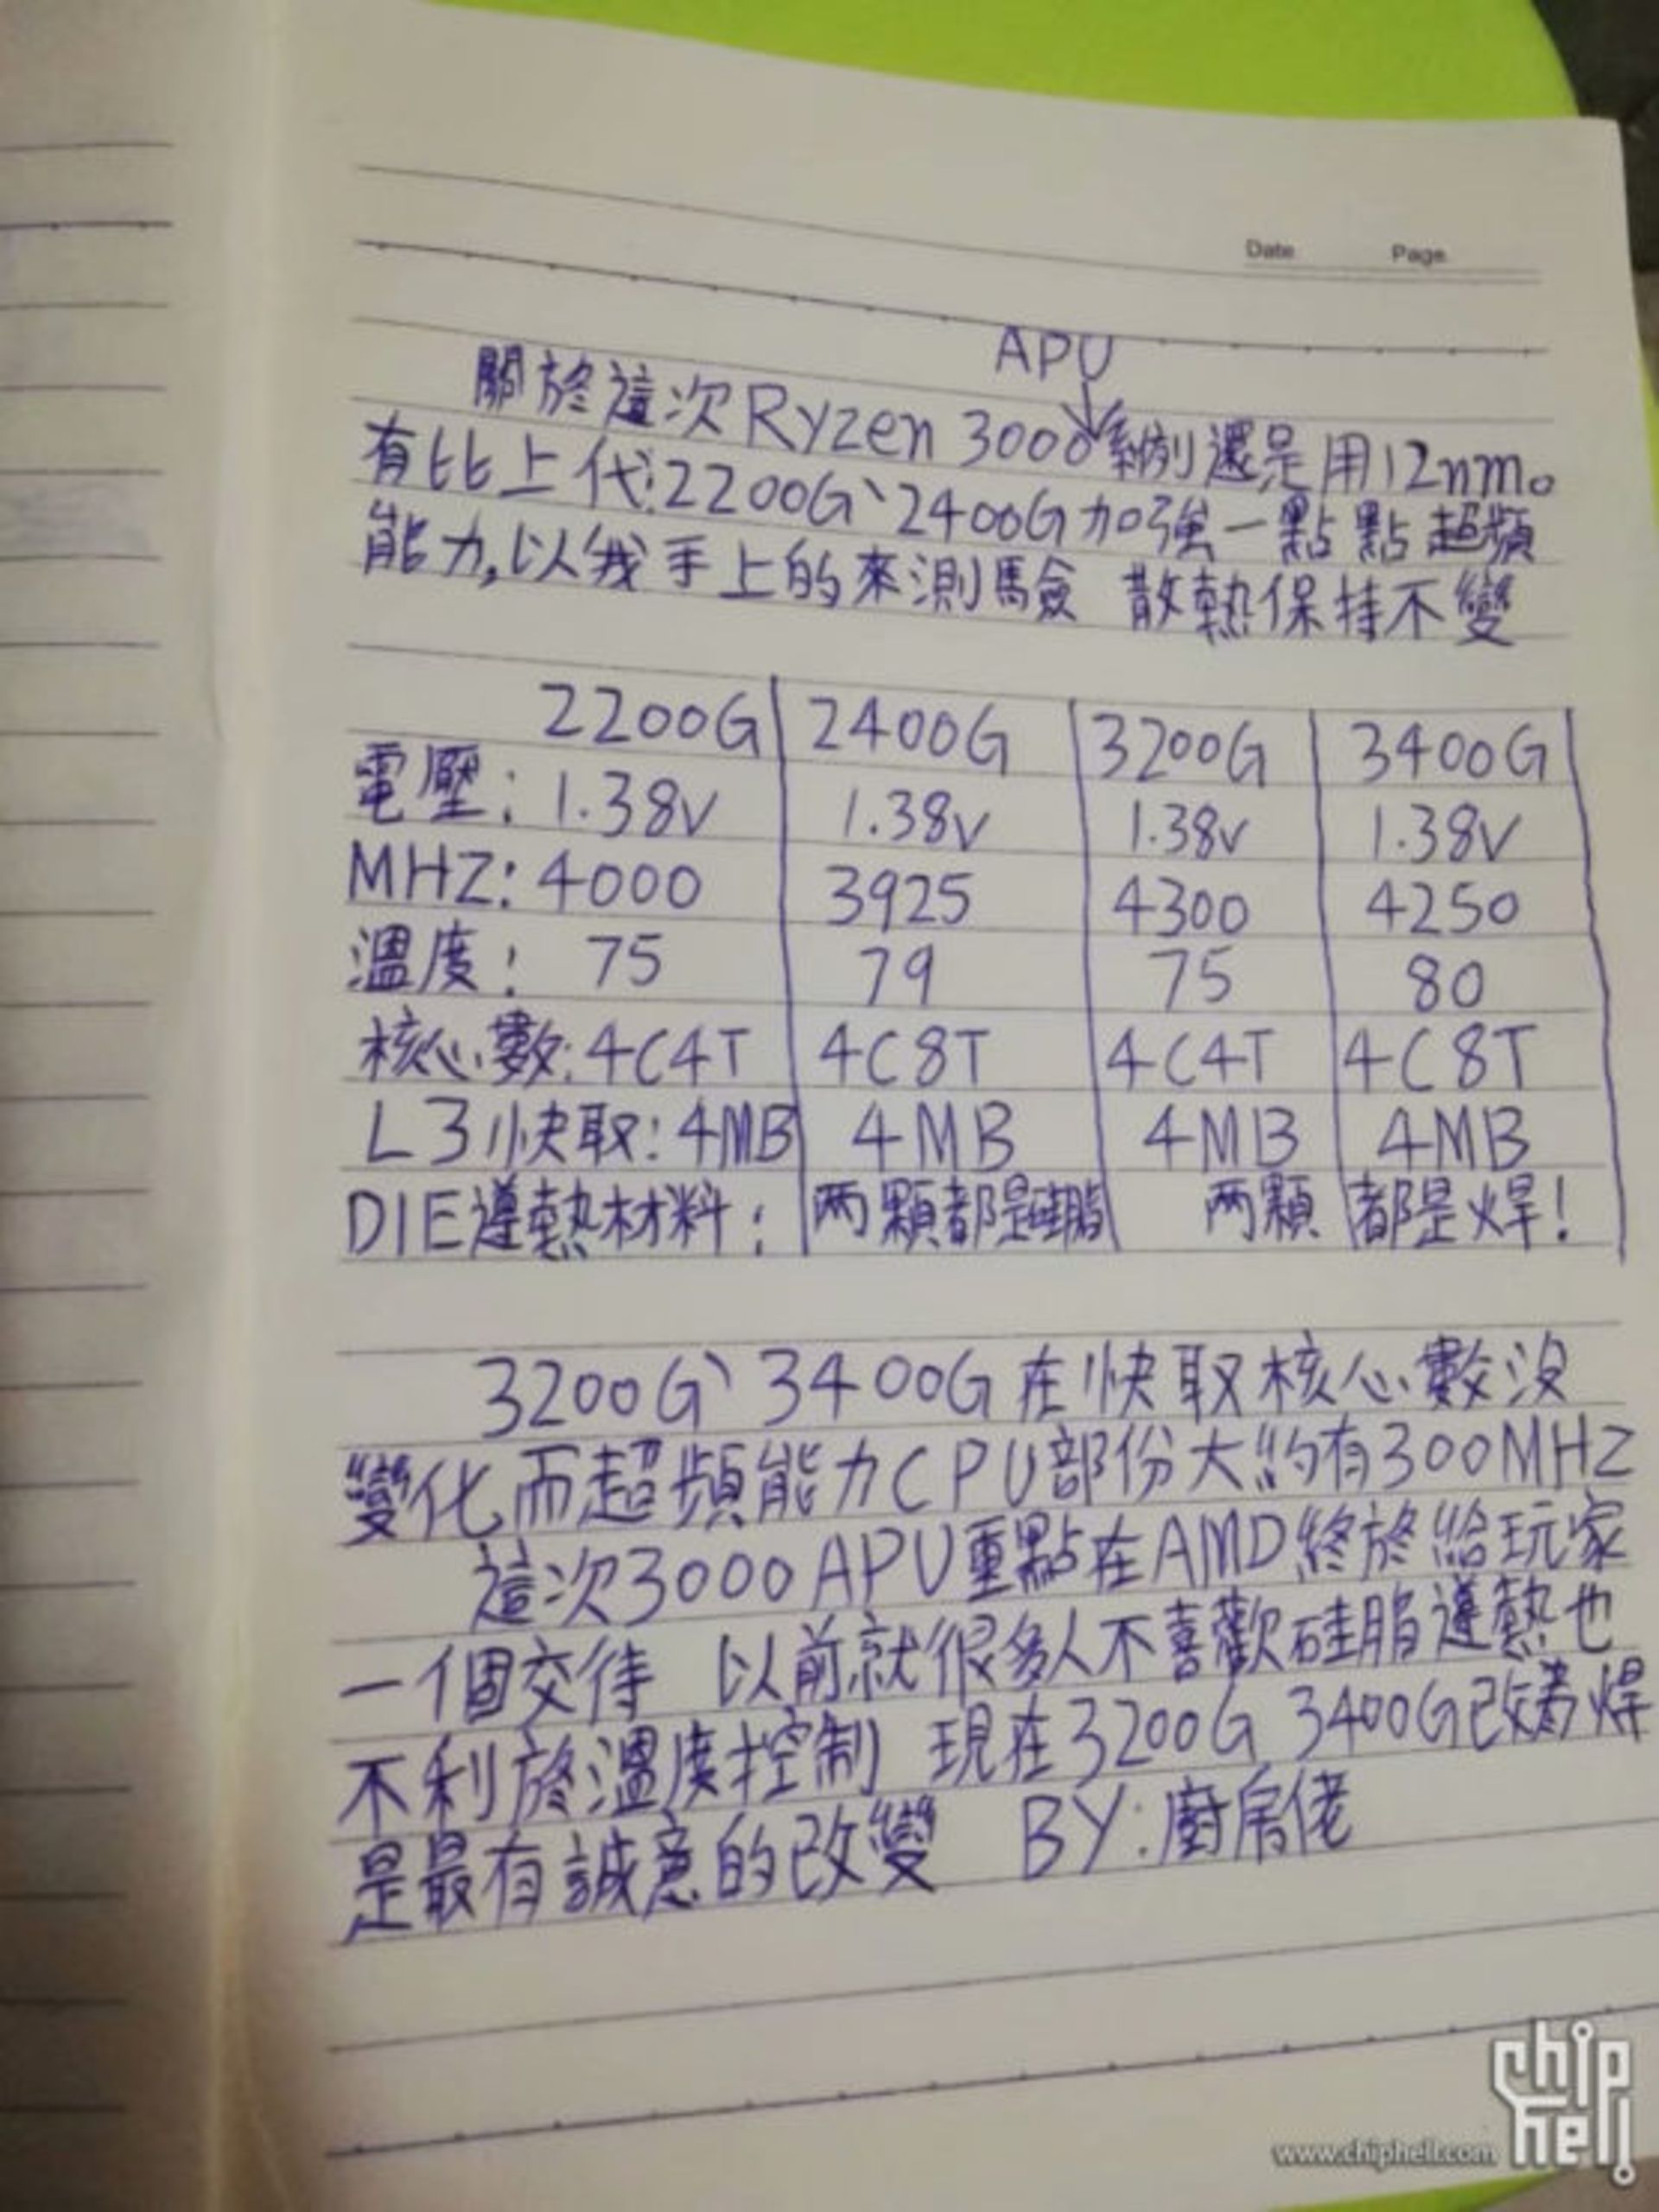 Date Page
APU
關於這次Ryzen 3000系列還是用12nm。
有比上代2200G、2400G加強一點點超頻
能力,以我手上的來測驗 散熱保持不變
2200G 2400G 3200G 3400G
電壓: 1.38v 1.38v 1.38v 1.38v
MHZ: 4000 3925 4300 4250
溫度: 75 79 75 80
核心數:4C4T 4C8T 4C4T 4C8T
L3快取:4MB 4MB 4MB 4MB
DIE導熱材料: 两顆都是硅脂 两顆都是焊!
3200G、3400G在快取核心數沒
變化,而超頻能力CPU部份大約有300MHZ
這次3000APU重點在AMD終於給玩家
一個交待 以前就很多人不喜歡硅脂導熱也
不利於溫度控制 現在3200G、3400G改為焊
是最有誠意的改變 BY:廚房佬
chip hell
www.chiphell.com